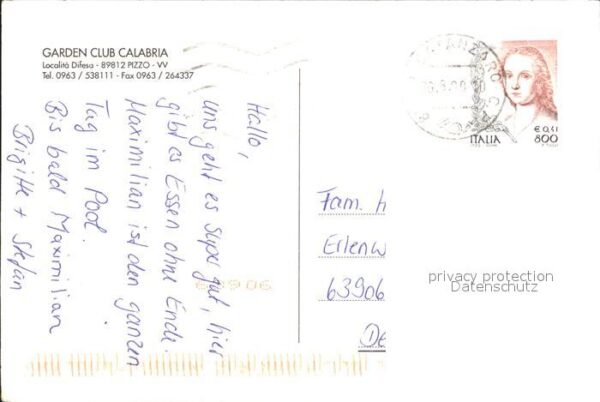 GARDEN CLUB CALABRIA
Località Difesa - 89812 PIZZO - VV
Tel. 0963 / 538111 - Fax 0963 / 264337
Hallo,
uns geht es super gut, hier
gibt es Essen ohne Ende.
Maximilian ist den ganzen
Tag im Pool.
Bis bald Maximilian
Brigitte + Stefan
€ 0,41
800
ITALIA
Fam.
63906
privacy protection
Datenschutz